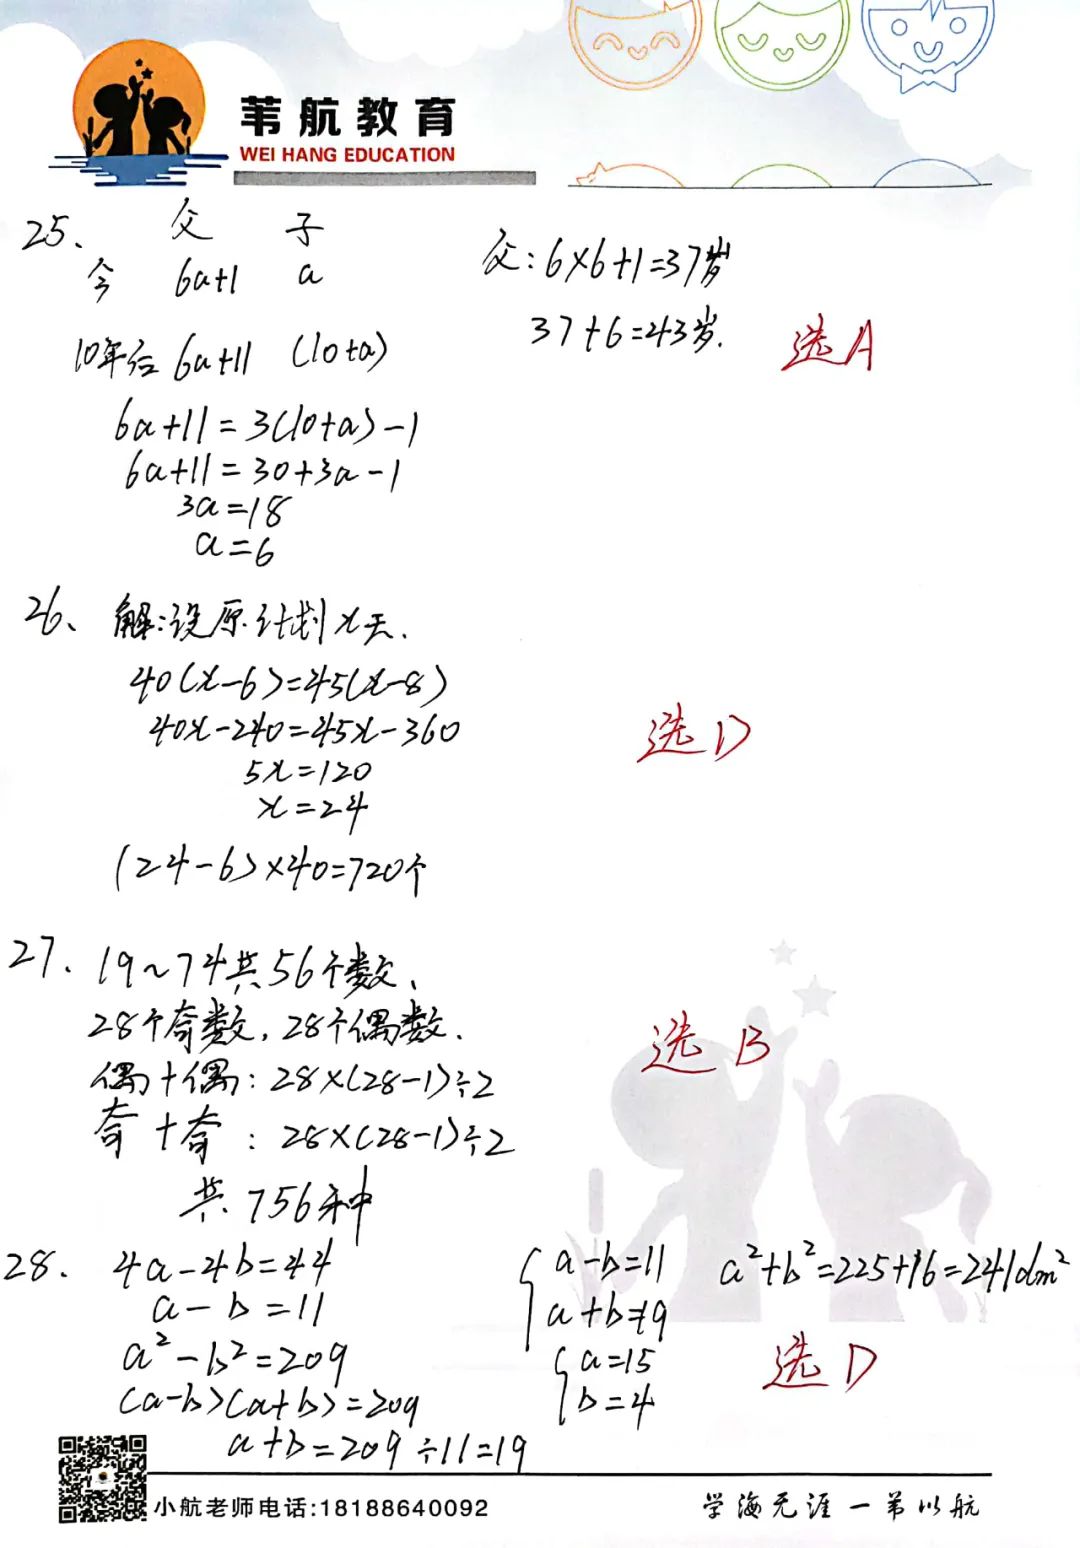 苇航教育
WEI HANG EDUCATION
25、 父 子
今 6a+1 a
10年后 6a+11 (10+a)
6a+11=3(10+a)-1
6a+11=30+3a-1
3a=18
a=6
父:6×6+1=37岁
37+6=43岁.
选A
26、 解:设原计划x天.
40(x-6)=45(x-8)
40x-240=45x-360
5x=120
x=24
(24-6)×40=720个
选D
27. 19~74共56个数,
28个奇数,28个偶数.
偶+偶:28×(28-1)÷2
奇+奇:28×(28-1)÷2
共756种
选B
28. 4a-4b=44
a-b=11
a²-b²=209
(a-b)(a+b)=209
a+b=209÷11=19
a-b=11
a+b=19
a=15
b=4
a²+b²=225+16=241dm²
选D
小航老师电话:18188640092
学海无涯一苇以航